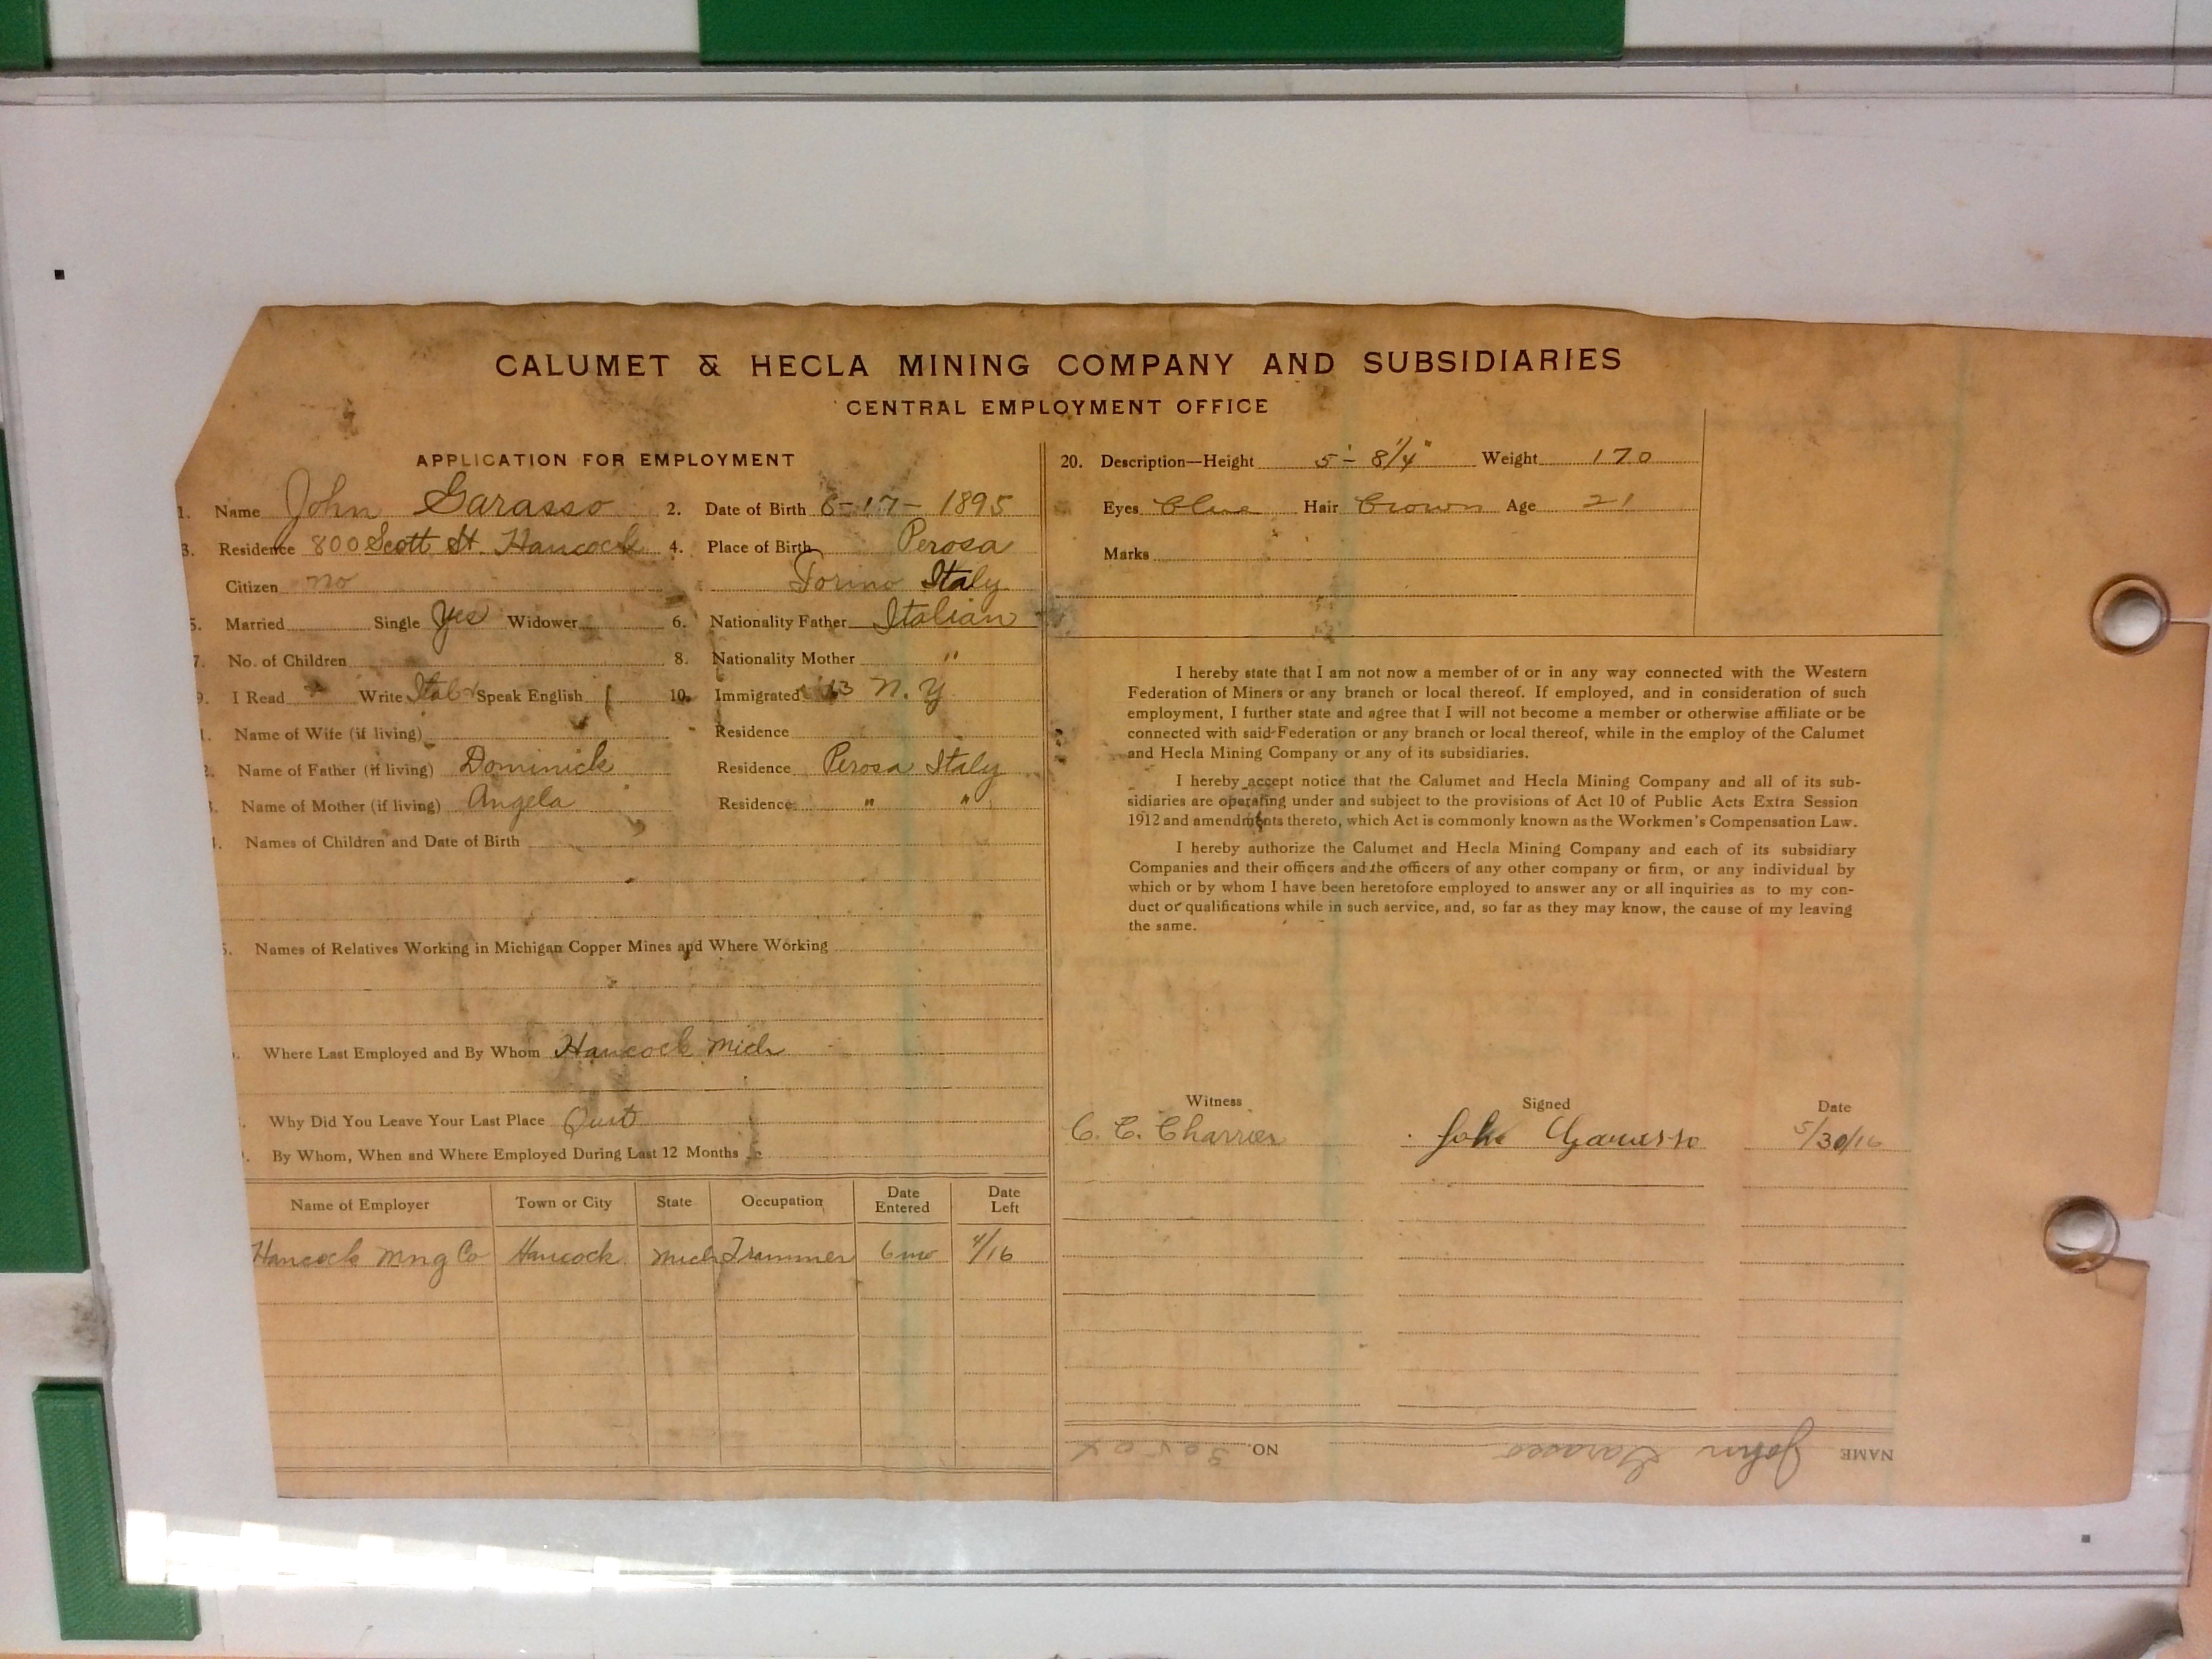 CALUMET & HECLA MINING COMPANY AND SUBSIDIARIES
CENTRAL EMPLOYMENT OFFICE
APPLICATION FOR EMPLOYMENT
1. Name John Garasso 2. Date of Birth 6-17-1895
3. Residence 800 Scott St. Hancock 4. Place of Birth Perosa
Citizen no Torino Italy
5. Married Single Yes Widower 6. Nationality Father Italian
7. No. of Children 8. Nationality Mother "
9. I Read Write Ital Speak English 10. Immigrated '13 N.Y
1. Name of Wife (if living) Residence
2. Name of Father (if living) Dominick Residence Perosa Italy
3. Name of Mother (if living) Angela Residence " "
4. Names of Children and Date of Birth
5. Names of Relatives Working in Michigan Copper Mines and Where Working
Where Last Employed and By Whom Hancock Mich
Why Did You Leave Your Last Place Quit
By Whom, When and Where Employed During Last 12 Months
Name of Employer Town or City State Occupation Date Entered Date Left
Hancock Mng Co Hancock Mich Trammer 6 mo 4/16
20. Description—Height 5'-8 1/4" Weight 170
Eyes Blue Hair Brown Age 21
Marks
I hereby state that I am not now a member of or in any way connected with the Western
Federation of Miners or any branch or local thereof. If employed, and in consideration of such
employment, I further state and agree that I will not become a member or otherwise affiliate or be
connected with said Federation or any branch or local thereof, while in the employ of the Calumet
and Hecla Mining Company or any of its subsidiaries.
I hereby accept notice that the Calumet and Hecla Mining Company and all of its sub-
sidiaries are operating under and subject to the provisions of Act 10 of Public Acts Extra Session
1912 and amendments thereto, which Act is commonly known as the Workmen's Compensation Law.
I hereby authorize the Calumet and Hecla Mining Company and each of its subsidiary
Companies and their officers and the officers of any other company or firm, or any individual by
which or by whom I have been heretofore employed to answer any or all inquiries as to my con-
duct or qualifications while in such service, and, so far as they may know, the cause of my leaving
the same.
Witness Signed Date
C. C. Charrier John Garasso 5/30/16
NAME John Garasso NO.